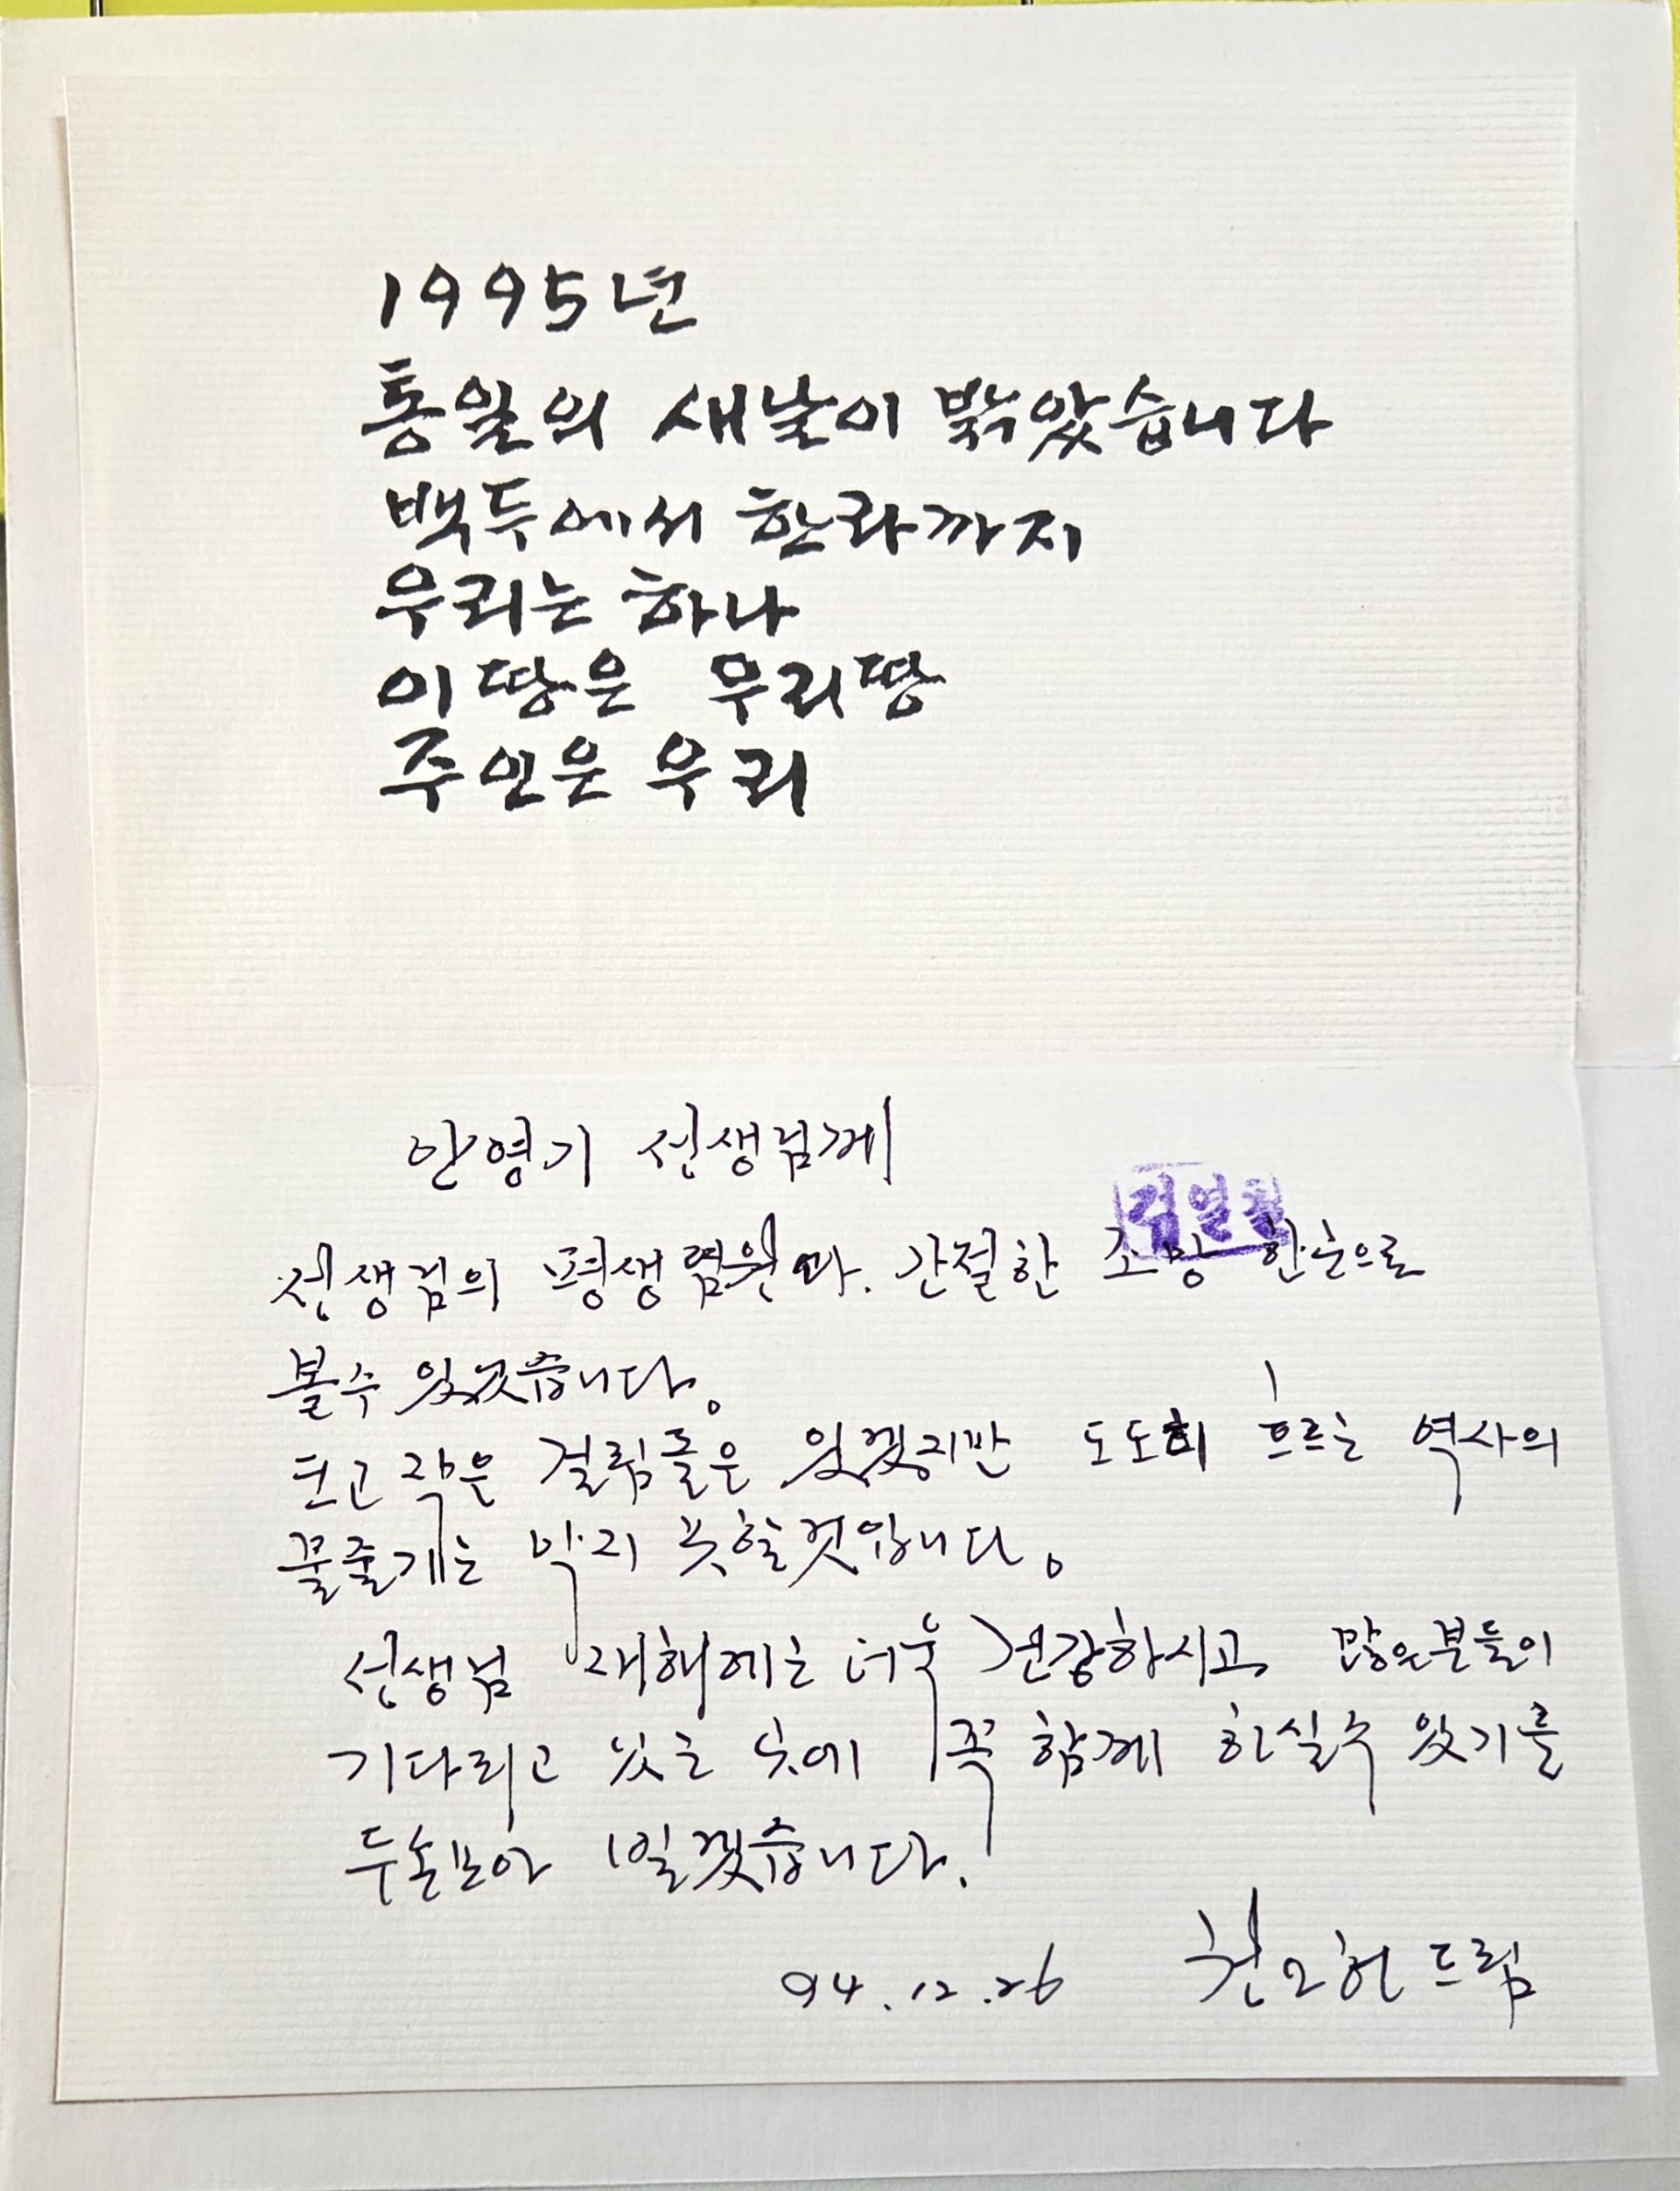 1995년
통일의 새날이 밝았습니다
백두에서 한라까지
우리는 하나
이땅은 우리땅
주인은 우리
안영기 선생님께
검열필
선생님의 평생 염원과. 간절한 소망 한눈으로
볼수 있겠습니다。
크고 작은 걸림돌은 있겠지만 도도히 흐르는 역사의
물줄기는 막지 못할것입니다。
선생님 새해에는 더욱 건강하시고, 많은분들이
기다리고 있는 곳에 꼭 함께 하실수 있기를
두손모아 빌겠습니다.
94.12.26 드림